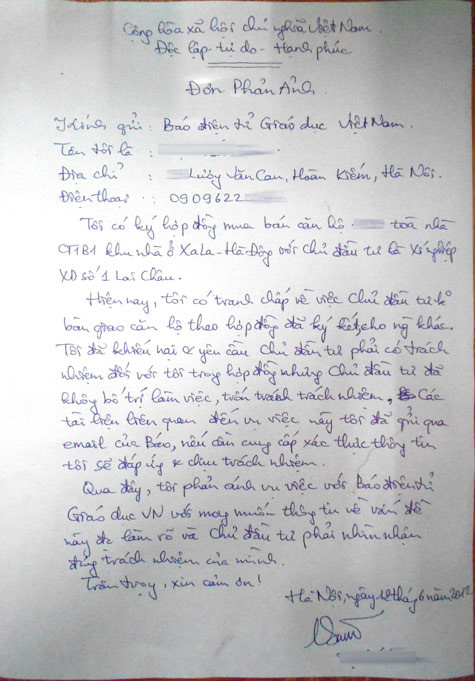 Cộng hòa xã hội chủ nghĩa Việt Nam.
Độc lập - tự do - Hạnh phúc
Đơn Phản Ánh.
Kính gửi : Báo điện tử Giáo dục Việt Nam.
Tên tôi là :
Địa chỉ : Lương Văn Can, Hoàn Kiếm, Hà Nội.
Điện thoại : 0909622
Tôi có ký hợp đồng mua bán căn hộ toà nhà
CT1B1 khu nhà ở XaLa - Hà Đông với Chủ đầu tư là Xí nghiệp
XD số 1 Lai Châu.
Hiện nay, tôi có tranh chấp về việc Chủ đầu tư
bàn giao căn hộ theo hợp đồng đã ký kết, cho ng khác.
Tôi đã khiếu nại & yêu cầu Chủ đầu tư phải có trách
nhiệm đối với tôi trong hợp đồng nhưng Chủ đầu tư đã
không bố trí làm việc, trốn tránh trách nhiệm. Các
tài liệu liên quan đến vụ việc này tôi đã gửi qua
email của Báo, nếu cần cung cấp xác thực thông tin
tôi sẽ đáp ứng & chịu trách nhiệm.
Qua đây, tôi phản ánh vụ việc với Báo điện tử
Giáo dục VN với mong muốn thông tin về vấn đề
này đc làm rõ và Chủ đầu tư phải nhìn nhận
đúng trách nhiệm của mình.
Trân trọng, xin cảm ơn!
Hà Nội, ngày 12 tháng 6 năm 2012